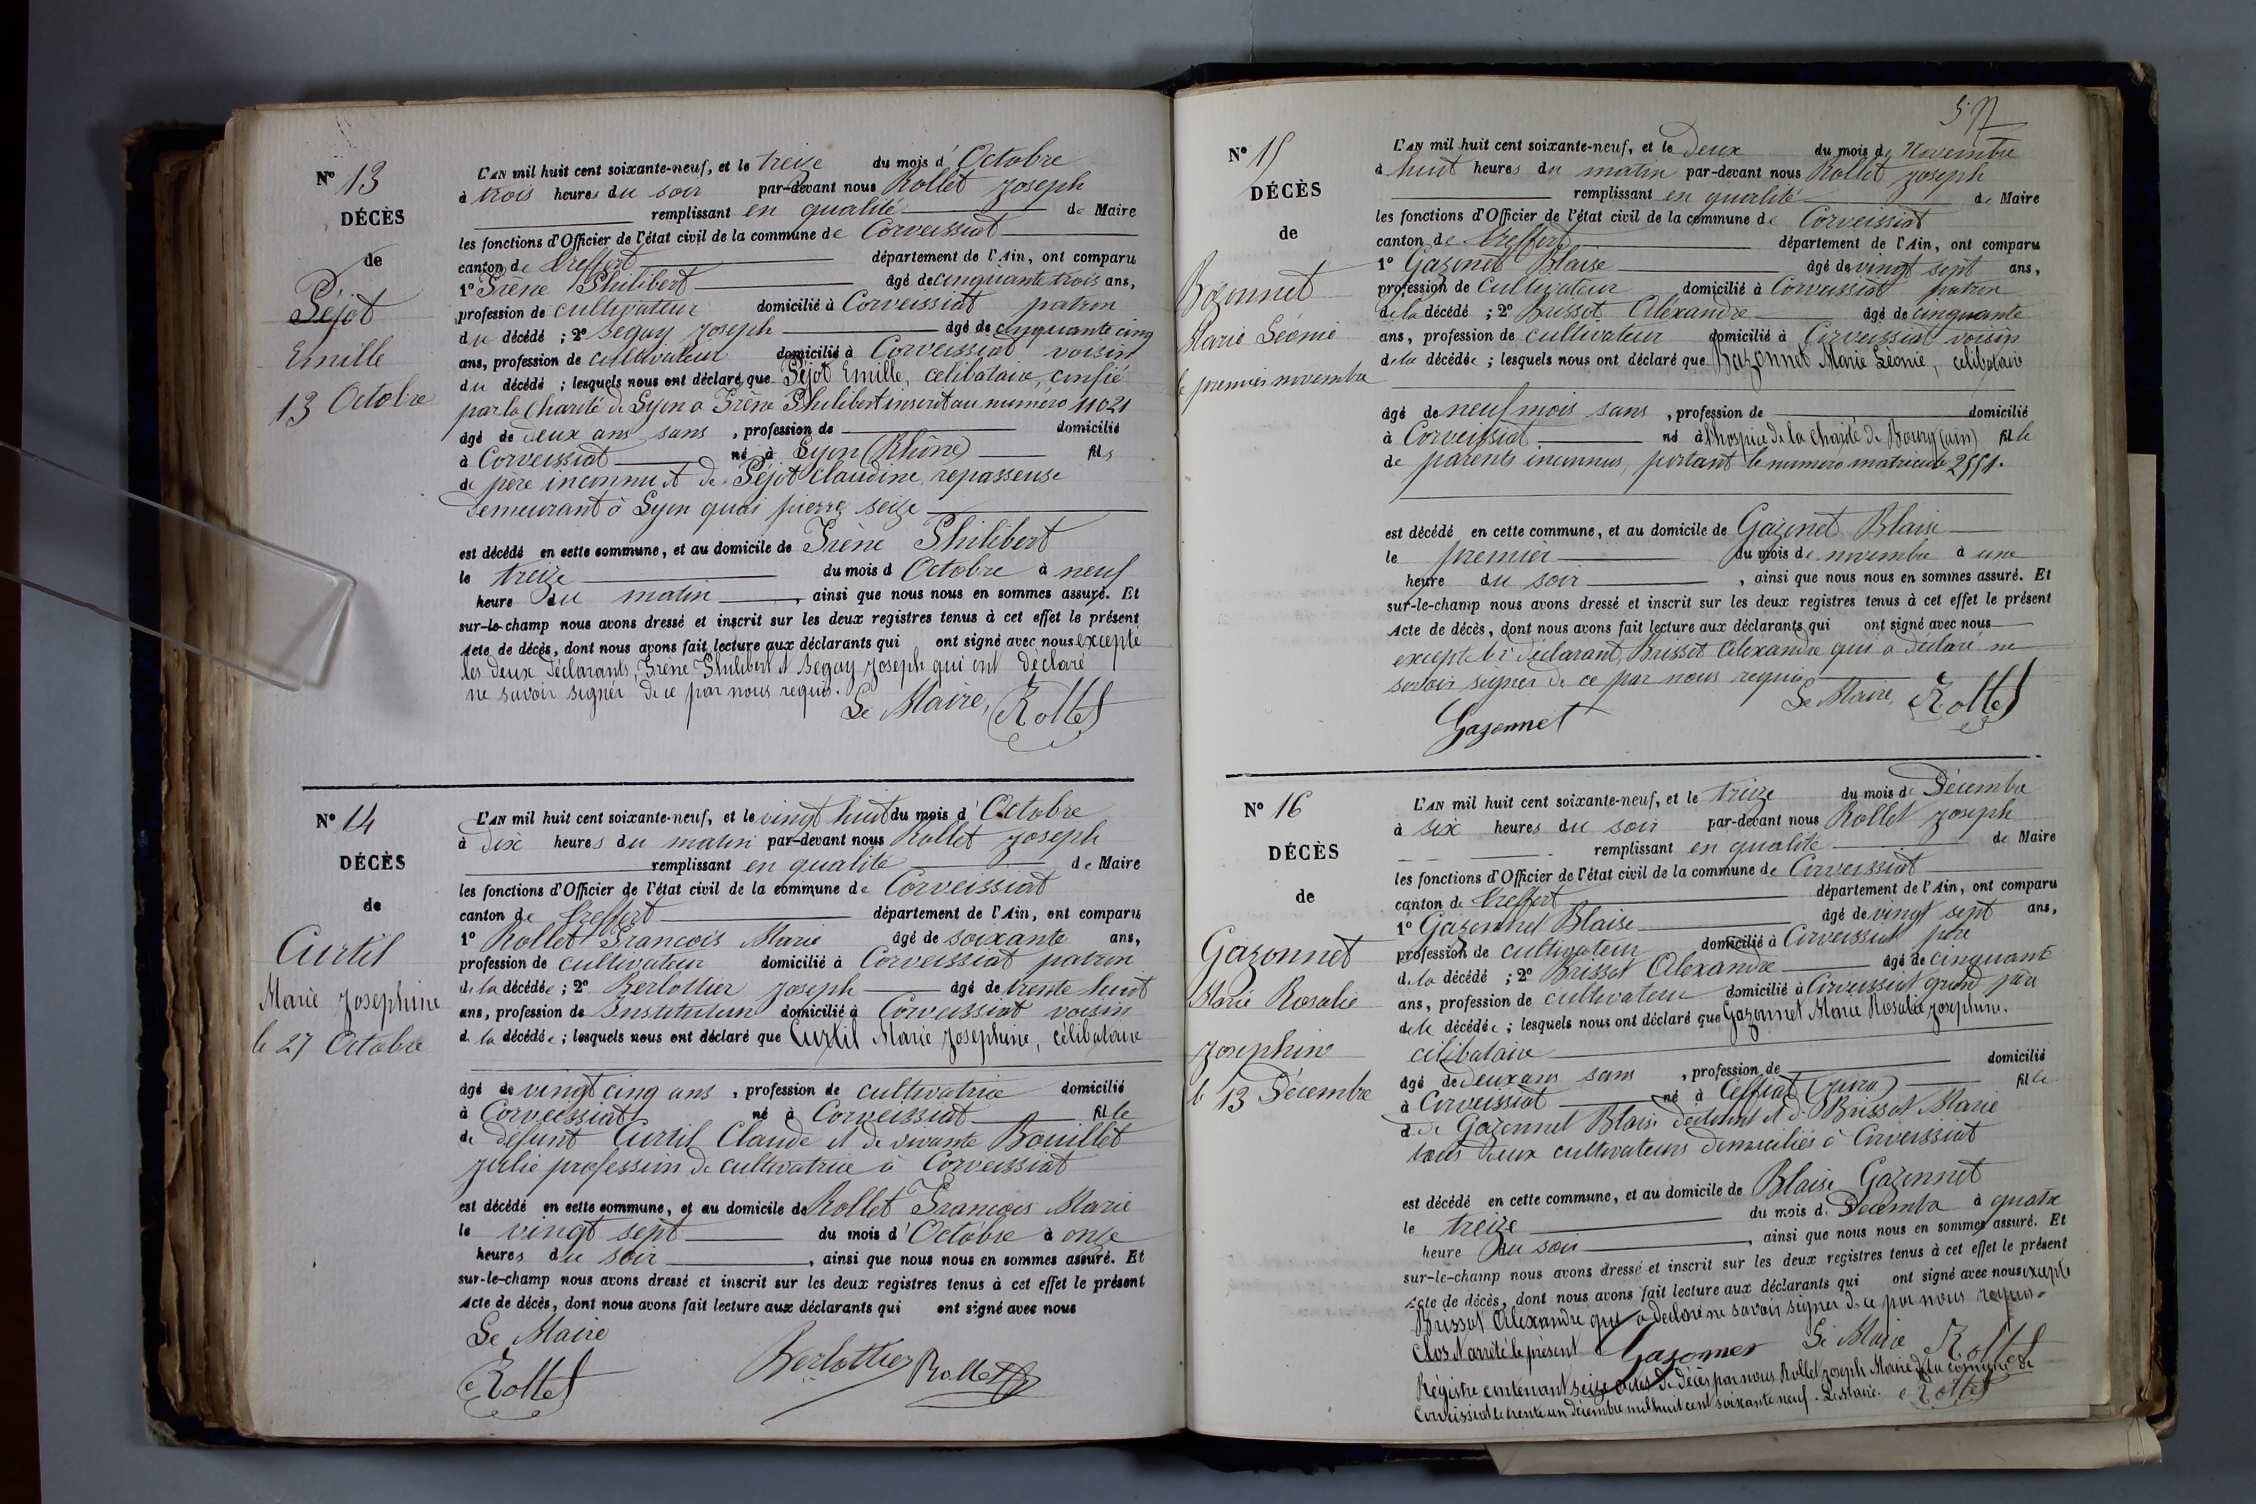 Nº 13
DÉCÈS
de
Péjot
Emille
13 Octobre
L'AN mil huit cent soixante-neuf, et le treize du mois d'Octobre
à trois heures du soir par-devant nous Rollet Joseph
remplissant en qualité de Maire
les fonctions d'Officier de l'état civil de la commune de Corveissiat
canton de Treffort département de l'Ain, ont comparu
1º Frène Philibert âgé de cinquante trois ans,
profession de cultivateur domicilié à Corveissiat patron
du décédé ; 2º Seguy Joseph âgé de cinquante cinq
ans, profession de cultivateur domicilié à Corveissiat voisin
du décédé ; lesquels nous ont déclaré que Péjot Emille, célibataire, confié
par la Charité de Lyon a Frène Philibert inscrit au numéro 11021
âgé de deux ans sans , profession de domicilié
à Corveissiat né à Lyon (Rhône) fils
de père inconnu et de Péjot Claudine, repasseuse
demeurant à Lyon quai pierre seize
est décédé en cette commune, et au domicile de Frène Philibert
le treize du mois d Octobre à neuf
heure du matin , ainsi que nous nous en sommes assuré. Et
sur-le-champ nous avons dressé et inscrit sur les deux registres tenus à cet effet le présent
Acte de décès, dont nous avons fait lecture aux déclarants qui ont signé avec nous excepté
les deux déclarants, Frène Philibert et Seguy Joseph qui ont déclaré
ne savoir signer de ce par nous requis.
Le Maire, Rollet
Nº 14
DÉCÈS
de
Curtil
Marie Josephine
le 27 Octobre
L'AN mil huit cent soixante-neuf, et le vingt huit du mois d'Octobre
à dix heures du matin par-devant nous Rollet Joseph
remplissant en qualité de Maire
les fonctions d'Officier de l'état civil de la commune de Corveissiat
canton de Treffort département de l'Ain, ont comparu
1º Rollet Francois Marie âgé de soixante ans,
profession de cultivateur domicilié à Corveissiat patron
de la décédée ; 2º Berlottier Joseph âgé de trente huit
ans, profession de Instituteur domicilié à Corveissiat voisin
d la décédée ; lesquels nous ont déclaré que Curtil Marie Josephine, célibataire
âgé de vingt cinq ans , profession de cultivatrice domicilié
à Corveissiat né à Corveissiat fille
de défunt Curtil Claude et de vivante Bouillet
Julie profession de cultivatrice à Corveissiat
est décédé en cette commune, et au domicile de Rollet Francois Marie
le vingt sept du mois d'Octobre à onze
heures du soir , ainsi que nous nous en sommes assuré. Et
sur-le-champ nous avons dressé et inscrit sur les deux registres tenus à cet effet le présent
Acte de décès, dont nous avons fait lecture aux déclarants qui ont signé avec nous
Le Maire
Rollet Berlottier Rollet
57
Nº 15
DÉCÈS
de
Bozonnet
Marie Léonie
le premier novembre
L'AN mil huit cent soixante-neuf, et le deux du mois de Novembre
à huit heures du matin par-devant nous Rollet Joseph
remplissant en qualité de Maire
les fonctions d'Officier de l'état civil de la commune de Corveissiat
canton de Treffort département de l'Ain, ont comparu
1º Gazonet Blaise âgé de vingt sept ans,
profession de Cultivateur domicilié à Corveissiat patron
de la décédé ; 2º Brissot Alexandre âgé de cinquante
ans, profession de cultivateur domicilié à Corveissiat voisin
de la décédée ; lesquels nous ont déclaré que Bozonnet Marie Léonie, célibataire
âgé de neuf mois sans , profession de domicilié
à Corveissiat né à l'hospice de la charité de Bourg (ain) fille
de parents inconnus, portant le numéro matricule 2551.
est décédé en cette commune, et au domicile de Gazonet Blaise
le premier du mois de novembre à une
heure du soir , ainsi que nous nous en sommes assuré. Et
sur-le-champ nous avons dressé et inscrit sur les deux registres tenus à cet effet le présent
Acte de décès, dont nous avons fait lecture aux déclarants qui ont signé avec nous
excepté le 2e déclarant, Brissot Alexandre qui a déclaré ne
savoir signer de ce par nous requis
Le Maire, Rollet
Gazonnet
Nº 16
DÉCÈS
de
Gazonnet
Marie Rosalie
Josephine
le 13 Décembre
L'AN mil huit cent soixante-neuf, et le treize du mois de Décembre
à six heures du soir par-devant nous Rollet Joseph
remplissant en qualité de Maire
les fonctions d'Officier de l'état civil de la commune de Corveissiat
canton de Treffort département de l'Ain, ont comparu
1º Gazonnet Blaise âgé de vingt sept ans,
profession de cultivateur domicilié à Corveissiat père
de la décédé ; 2º Brissot Alexandre âgé de cinquante
ans, profession de cultivateur domicilié à Corveissiat grand père
de la décédée ; lesquels nous ont déclaré que Gazonnet Marie Rosalie Josephine.
célibataire
âgé de deux ans sans , profession de domicilié
à Corveissiat né à Ceffiat (Jura) fille
de Gazonnet Blaise déclarant et de Brissot Marie
tous deux cultivateurs domiciliés à Corveissiat
est décédé en cette commune, et au domicile de Blaise Gazonnet
le treize du mois de Décembre à quatre
heure du soir , ainsi que nous nous en sommes assuré. Et
sur-le-champ nous avons dressé et inscrit sur les deux registres tenus à cet effet le présent
Acte de décès, dont nous avons fait lecture aux déclarants qui ont signé avec nous excepté
Brissot Alexandre qui a déclaré ne savoir signer de ce par nous requis.
Clos et arrêté le présent Gazonnet Le Maire Rollet
Régistre contenant seize actes de décès par nous Rollet Joseph Maire de la commune de
Corveissiat le trente un décembre mil huit cent soixante neuf. Le Maire. Rollet